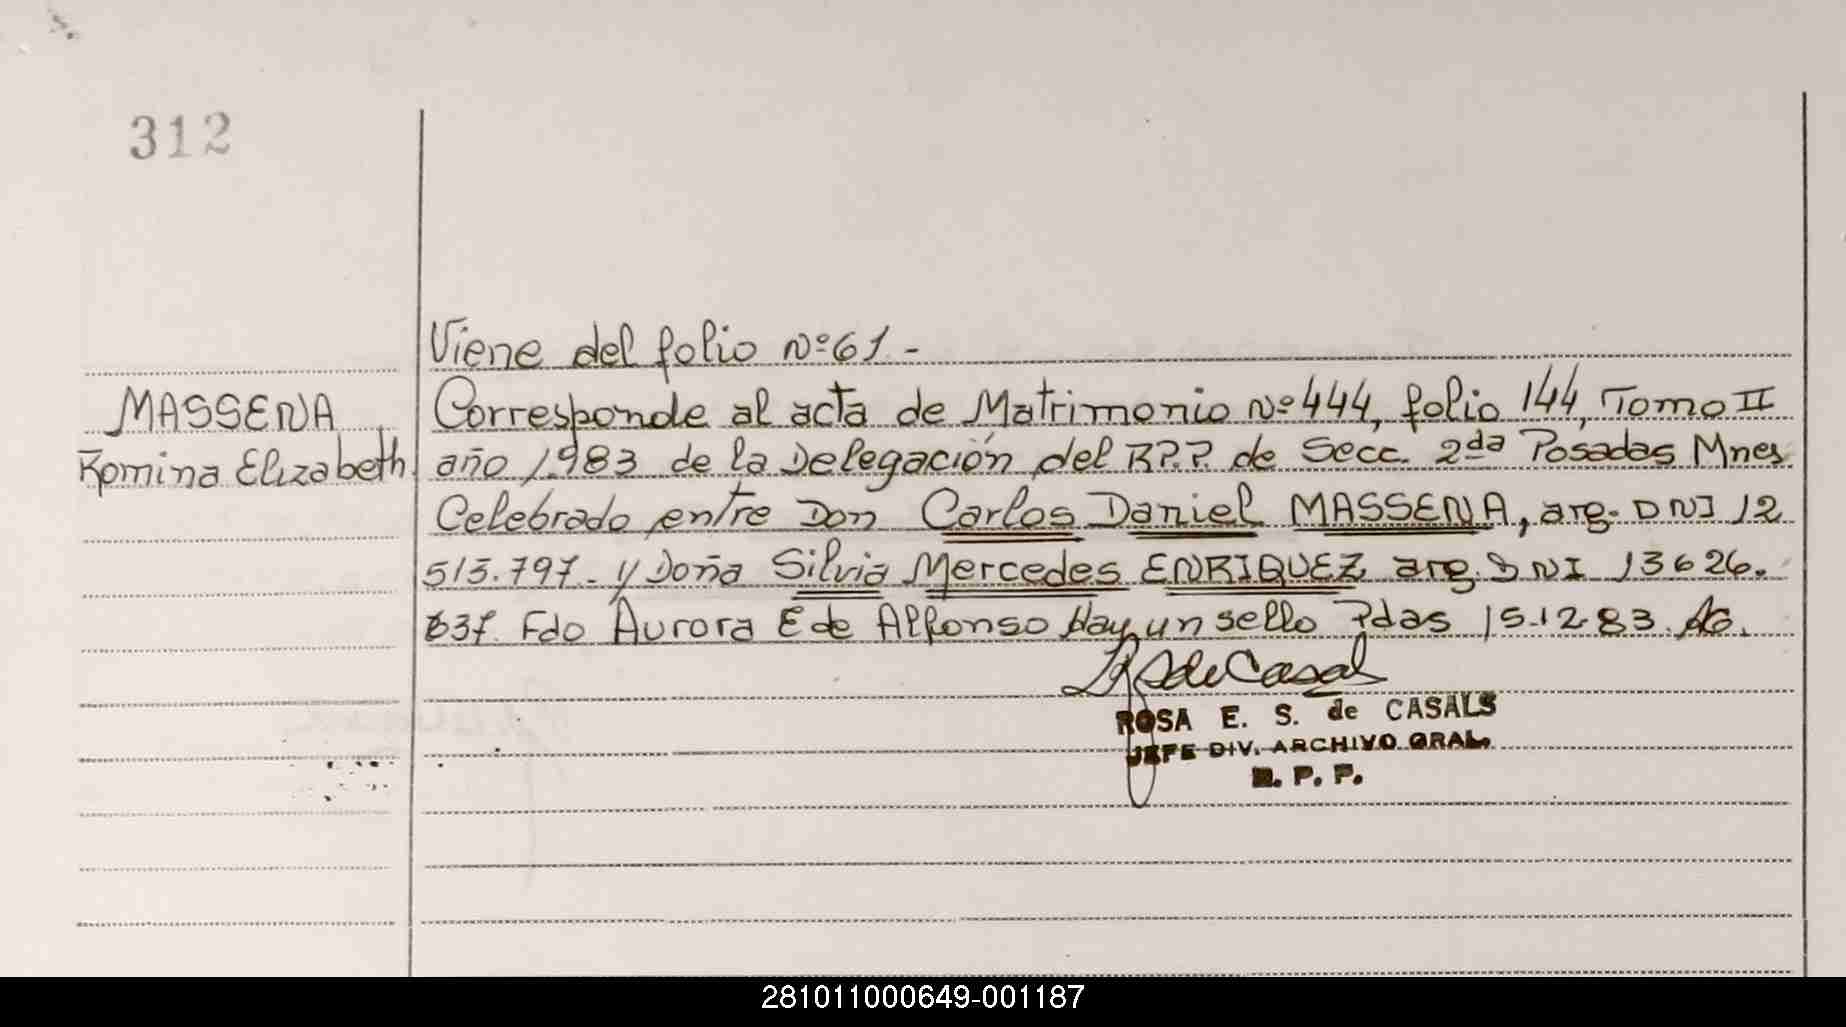 312
Viene del folio Nº 61 -
MASSENA
Romina Elizabeth
Corresponde al acta de Matrimonio Nº 444, folio 144, Tomo II
año 1983 de la Delegación del R.P.P. de Secc. 2da Posadas Mnes
Celebrado entre Don Carlos Daniel MASSENA, arg. DNI 12
513.797 - y Doña Silvia Mercedes ENRIQUEZ arg. DNI 13626.
Fdo Aurora E de Alfonso Hay un sello Pdas 15.12.83.
ROSA E. S. de CASALS
JEFE DIV. ARCHIVO GRAL.
R. P. P.
281011000649-001187